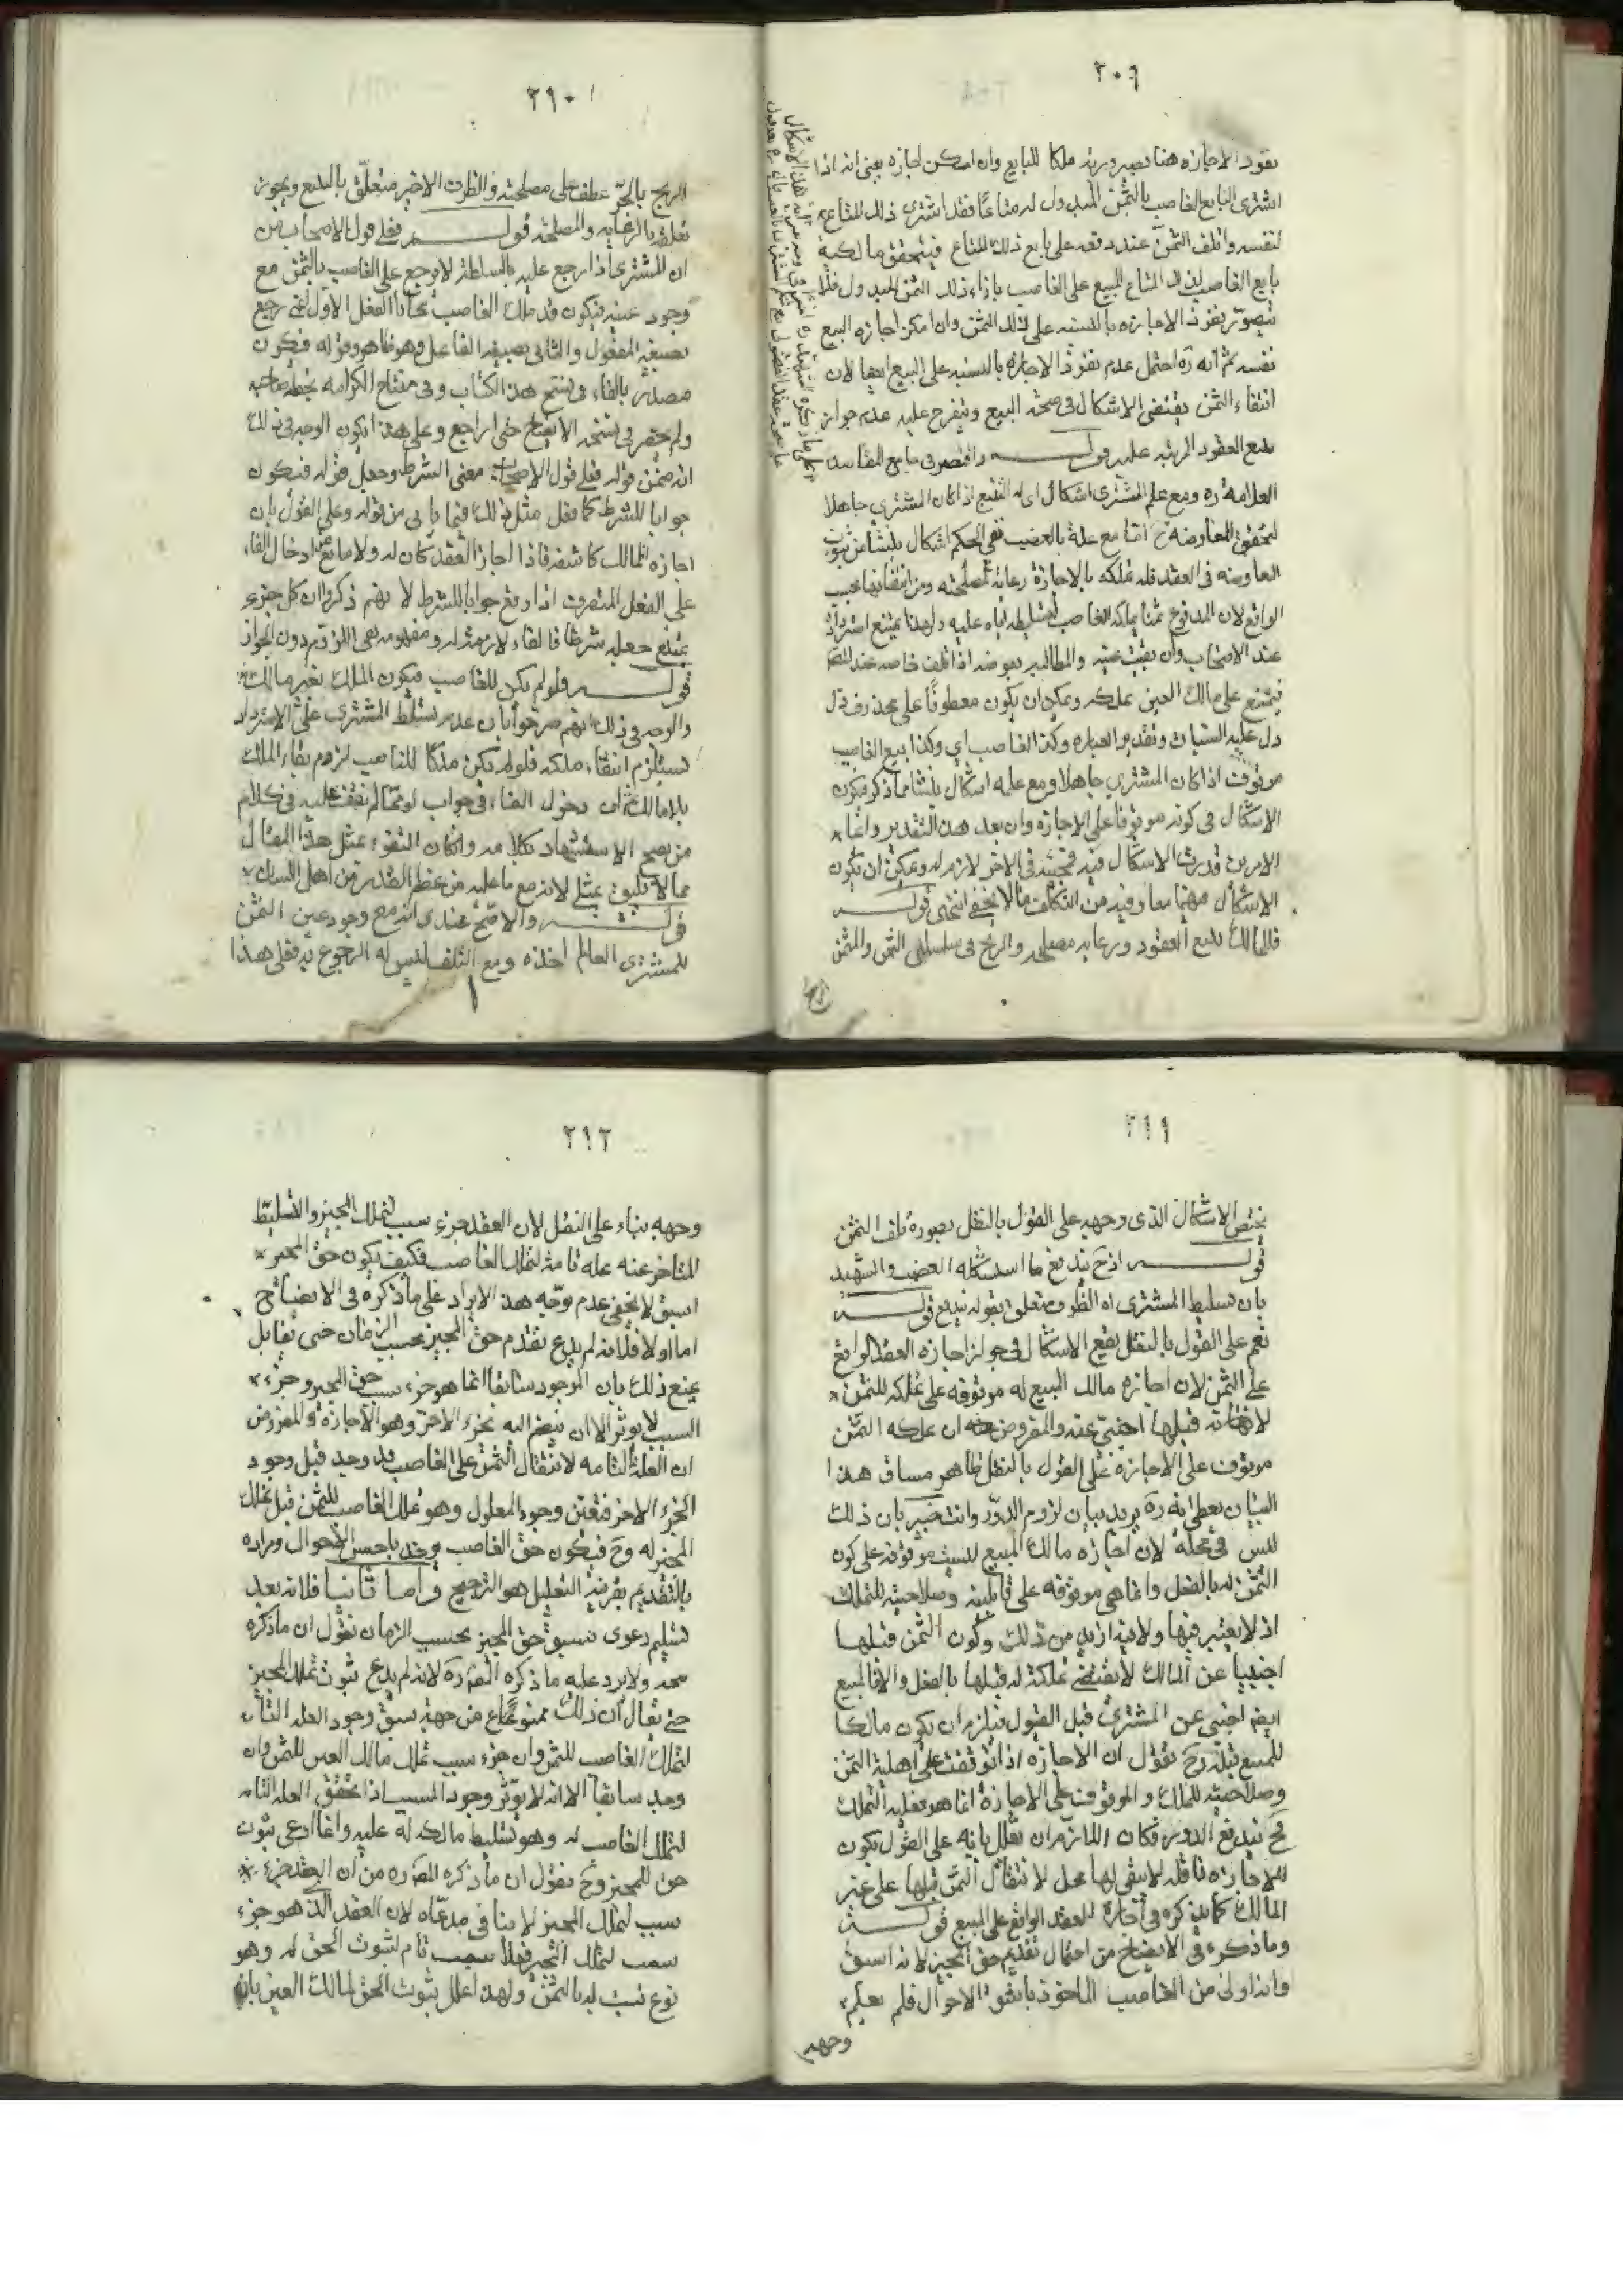 ٢٠٩
نفوذ الاجازه هنا بصيرورته ملكا للبايع وان امكن اجازه يعنى انه اذا
اشترى البايع الغاصب بالثمن المبذول له متاعًا فقد اشترى ذلك المتاع
لنفسه واتلف الثمن عند دفعه على بايع ذلك المتاع فيتحقق مالكية
بايع الغاصب لذلك المتاع المبيع على الغاصب بازاء ذلك الثمن المبذول فلا
يتصور نفوذ الاجازه بالنسبه على ذلك الثمن وان امكن اجازه البيع
نفسه ثم انه ره احتمل عدم نفوذ الاجازة بالنسبه على البيع ايضا لان
انتفاء الثمن يقتضى الاشكال فى صحة البيع ويتفرع عليه عدم جواز
تتبع العقود المرتبه عليه قوله واقتصر فى جامع المقاصد
العلامة ره ومع علم المشترى اشكال اى له التتبع اذا كان المشترى جاهلا
لتحقق المعاوضة ح اما مع علمه بالغصب ففى الحكم اشكال ينشأ من ثبوت
المعاوضه فى العقد فله تملكه بالاجازة رعاية لمصلحته ومن انتفائها بحسب
الواقع لان المدفوع ثمنا يملكه الغاصب لتسليطه اياه عليه ولهذا يمتنع استرداده
عند الاصحاب وان بقيت عينه والمطالبه بعوضه اذا تلف خاصه عند المصنف
فيمتنع على مالك العين تملكه ويمكن ان يكون معطوفًا على محذوف
دل عليه السياق وتقدير العباره وكذا الغاصب اى وكذا بيع الغاصب
موقوف اذا كان المشترى جاهلا ومع علمه اشكال ينشأ مما ذكر فيكون
الاشكال فى كونه موقوفا على الاجازه وان بعد هذا التقدير واى
الامرين قدرت الاشكال فيه فمجيئه فى الاخر لازم له ويمكن ان يكون
الاشكال فيهما معا وفيه من التكلف ما لا يخفى انتهى قوله
فللمالك تتبع العقود ورعايه مصلحته والربح فى سلسلتى الثمن والمثمن
٢١٠
الربح بالجرّ عطف على مصلحته والظرف الاخير متعلّق بالتتبع ويجوز
تعلقه بالرعايه والمصلحه قوله فعلى قول الاصحاب من
ان المشترى اذا رجع عليه بالسلعة لا يرجع على الغاصب بالثمن مع
وجود عينه فيكون قد ملك الغاصب مجّانا الفعل الاول اعنى رجع
بصيغة المفعول والثانى بصيغة الفاعل وهو ظاهر وقوله فيكون
مصدّر بالفاء فى نسخ هذا الكتاب وفى مفتاح الكرامه بخط صاحبه
ولم يحضرنى نسخه الايضاح حتى اراجع وعلى هذا يكون الوجه فى ذلك
انه ضمّن قوله فعلى قول الاصحاب معنى الشرط وجعل قوله فيكون
جوابا للشرط كما فعل مثل ذلك فيما يأتى من قوله وعلى القول بان
اجازه المالك كاشفه فاذا اجاز العقد كان له ولا مانع من ادخال الفاء
على الفعل المتصرف اذا وقع جوابا للشرط لانهم ذكروا ان كل جزء
يمتنع جعله شرطا فالفاء لازمة له ومفهومه نفى اللزوم دون الجواز
قوله فلو لم يكن للغاصب فيكون الملك بغير مالك
والوجه فى ذلك انهم صرحوا بان عدم تسلّط المشترى على الاسترداد
يستلزم انتفاء ملكه فلو لم يكن ملكًا للغاصب لزم بقاء الملك
بلا مالك ثم ان دخول الفاء فى جواب لو ممّا لم نقف عليه فى كلام
من يصح الاستشهاد بكلامه وان كان التفوّه بمثل هذا المقال
مما لا يليق بمثلى لانه مع ما عليه من عظم القدر من اهل اللسان
قوله والاصح عندى انه مع وجود عين الثمن
للمشترى العالم اخذه ومع التلف ليس له الرجوع به فعلى هذا
٢١١
يختص الاشكال الذى وجهه على القول بالنقل بصورة تلف الثمن
قوله اذ ح يندفع ما استشكله القطب والشهيد
بان تسليط المشترى اه الظرف متعلق بقوله يندفع قوله
نعم على القول بالنقل يقع الاشكال فى جواز اجازه العقد الواقع
على الثمن لان اجازه مالك المبيع له موقوفه على تملكه للثمن
لانه قبلها اجنبىّ عنه والمفروض ان تملكه الثمن
موقوف على الاجازة على القول بالنقل ظاهر مساق هذا
البيان يعطى انه ره يريد بيان لزوم الدّور وانت خبير بان ذلك
ليس فى محلّه لان اجازه مالك المبيع ليست موقوفة على كون
الثمن له بالفعل وانما هى موقوفه على قابليته وصلاحيته للتملك
اذ لا يعتبر فيها ولا فيه ازيد من ذلك وكون الثمن قبلها
اجنبيا عن المالك لا يقتضى تملكه له قبلها بالفعل والا فالمبيع
ايضا اجنبى عن المشترى قبل القبول فيلزم ان يكون مالكا
للمبيع قبله وح نقول ان الاجازه اذا توقفت على اهلية الثمن
وصلاحيته للملك والموقوف على الاجازة انما هو فعلية التملك
فح يندفع الدور فكان اللازم ان يعلّل بانه على القول بكون
الاجازه ناقله لا يبقى لها محل لانتقال الثمن قبلها على غير
المالك كما يذكره فى اجازة العقد الواقع على المبيع قوله
وما ذكره فى الايضاح من احتمال تقديم حق المجيز لانه اسبق
وانه اولى من الغاصب الماخوذ باشق الاحوال فلم يعلم
وجهه
٢١٢
وجهه بناء على النقل لان العقد جزء سبب لتملك المجيز والتسليط
المتاخر عنه علة تامة لتملك الغاصب فكيف يكون حق المجيز
اسبق لا يخفى عدم توجّه هذا الايراد على ما ذكره فى الايضاح
اما اولا فلانه لم يدع تقدم حق المجيز بحسب الزمان حتى يقابل
بمنع ذلك بان الموجود سابقا انما هو جزء سبب حق المجيز وجزء
السبب لا يؤثر الا ان ينضم اليه الجزء الاخر وهو الاجازة والمفروض
ان العلة التامه لانتقال الثمن على الغاصب قد وجد قبل وجود
الجزء الاخر فتعيّن وجود المعلول وهو تملك الغاصب للثمن قبل تملك
المجيز له وح فيكون حق الغاصب يوخذ باحسن الاحوال ومراده
بالتقديم بقرينة التعليل هو الترجيح واما ثانيا فلانه بعد
تسليم دعوى سبق حق المجيز بحسب الزمان نقول ان ما ذكره
متجه ولا يرد عليه ما ذكره المصّ ره لانه لم يدع ثبوت تملك المجيز
حتى يقال ان ذلك ممنوع من جهة سبق وجود العلة التامه
لتملك الغاصب للثمن وان جزء سبب تملك مالك العين للثمن وان
وجد سابقا الا انه لا يؤثر وجود المسبب اذا تحقق العلة التامه
لتملك الغاصب له وهو تسليط مالكه له عليه وانما ادعى ثبوت
حق للمجيز وح نقول ان ما ذكره المصّ ره من ان العقد جزء
سبب لتملك المجيز لا ينافى مدعّاه لان العقد الذى هو جزء
سبب لتملك المجيز فعلا سبب تام لثبوت الحق له وهو
نوع نسبة له بالثمن ولهذا علل ثبوت الحق لمالك العين بانه